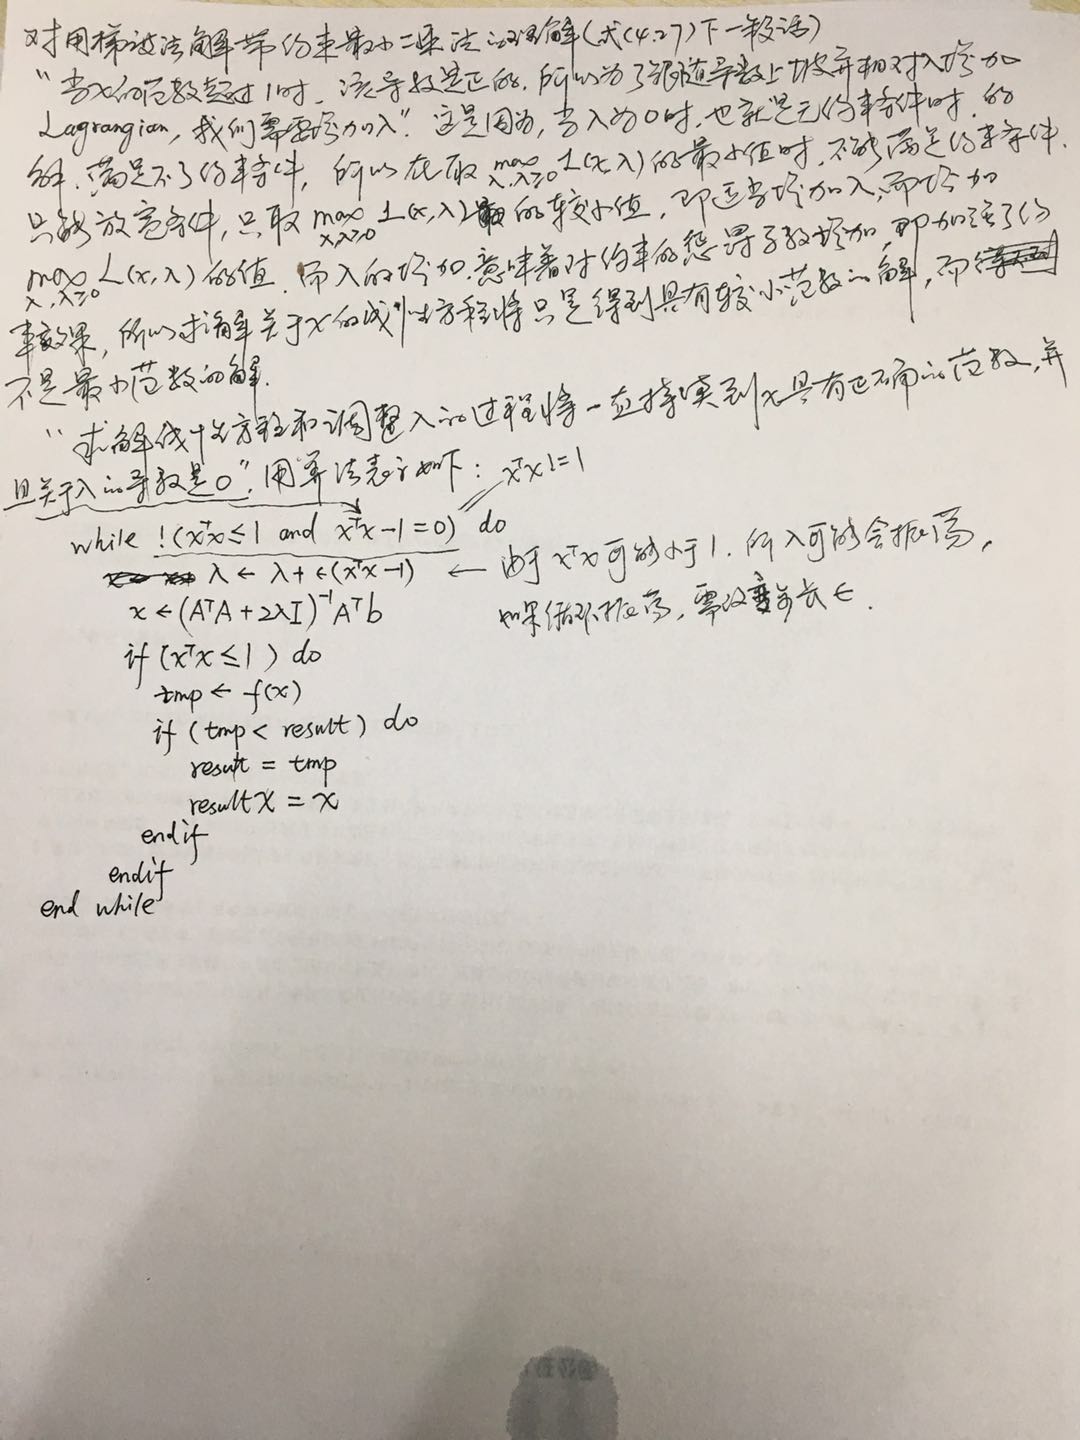 对用梯度法解带约束最小二乘法的理解(式(4.27)下一段话)
"当x的范数超过1时,该导数是正的,所以为了跟随导数上坡并相对λ增加
Lagrangian,我们需要增加λ".这是因为,当λ为0时,也就是无约束条件时,的
解,满足不了约束条件,所以在取 max λ,λ≥0 L(x,λ)的最小值时,不能满足约束条件.
只能放宽条件,只取 max λ,λ≥0 L(x,λ) 的较小值,即适当增加λ,而增加
max λ,λ≥0 L(x,λ)的值.而λ的增加,意味着对约束的惩罚系数增加,即加强了约
束效果,所以求解关于x的线性方程将只是得到具有较小范数的解,而
不是最小范数的解.
"求解线性方程和调整λ的过程将一直持续到x具有正确的范数,并
且关于λ的导数是0".用算法表示如下: xᵀx!=1
while !(xᵀx≤1 and xᵀx-1=0) do
λ←λ+ϵ(xᵀx-1) ← 由于xᵀx可能小于1.所λ可能会振荡,
x←(AᵀA+2λI)⁻¹Aᵀb 如果振荡,需改变步长ϵ.
if (xᵀx≤1) do
tmp←f(x)
if (tmp<result) do
result=tmp
resultX=x
endif
endif
end while